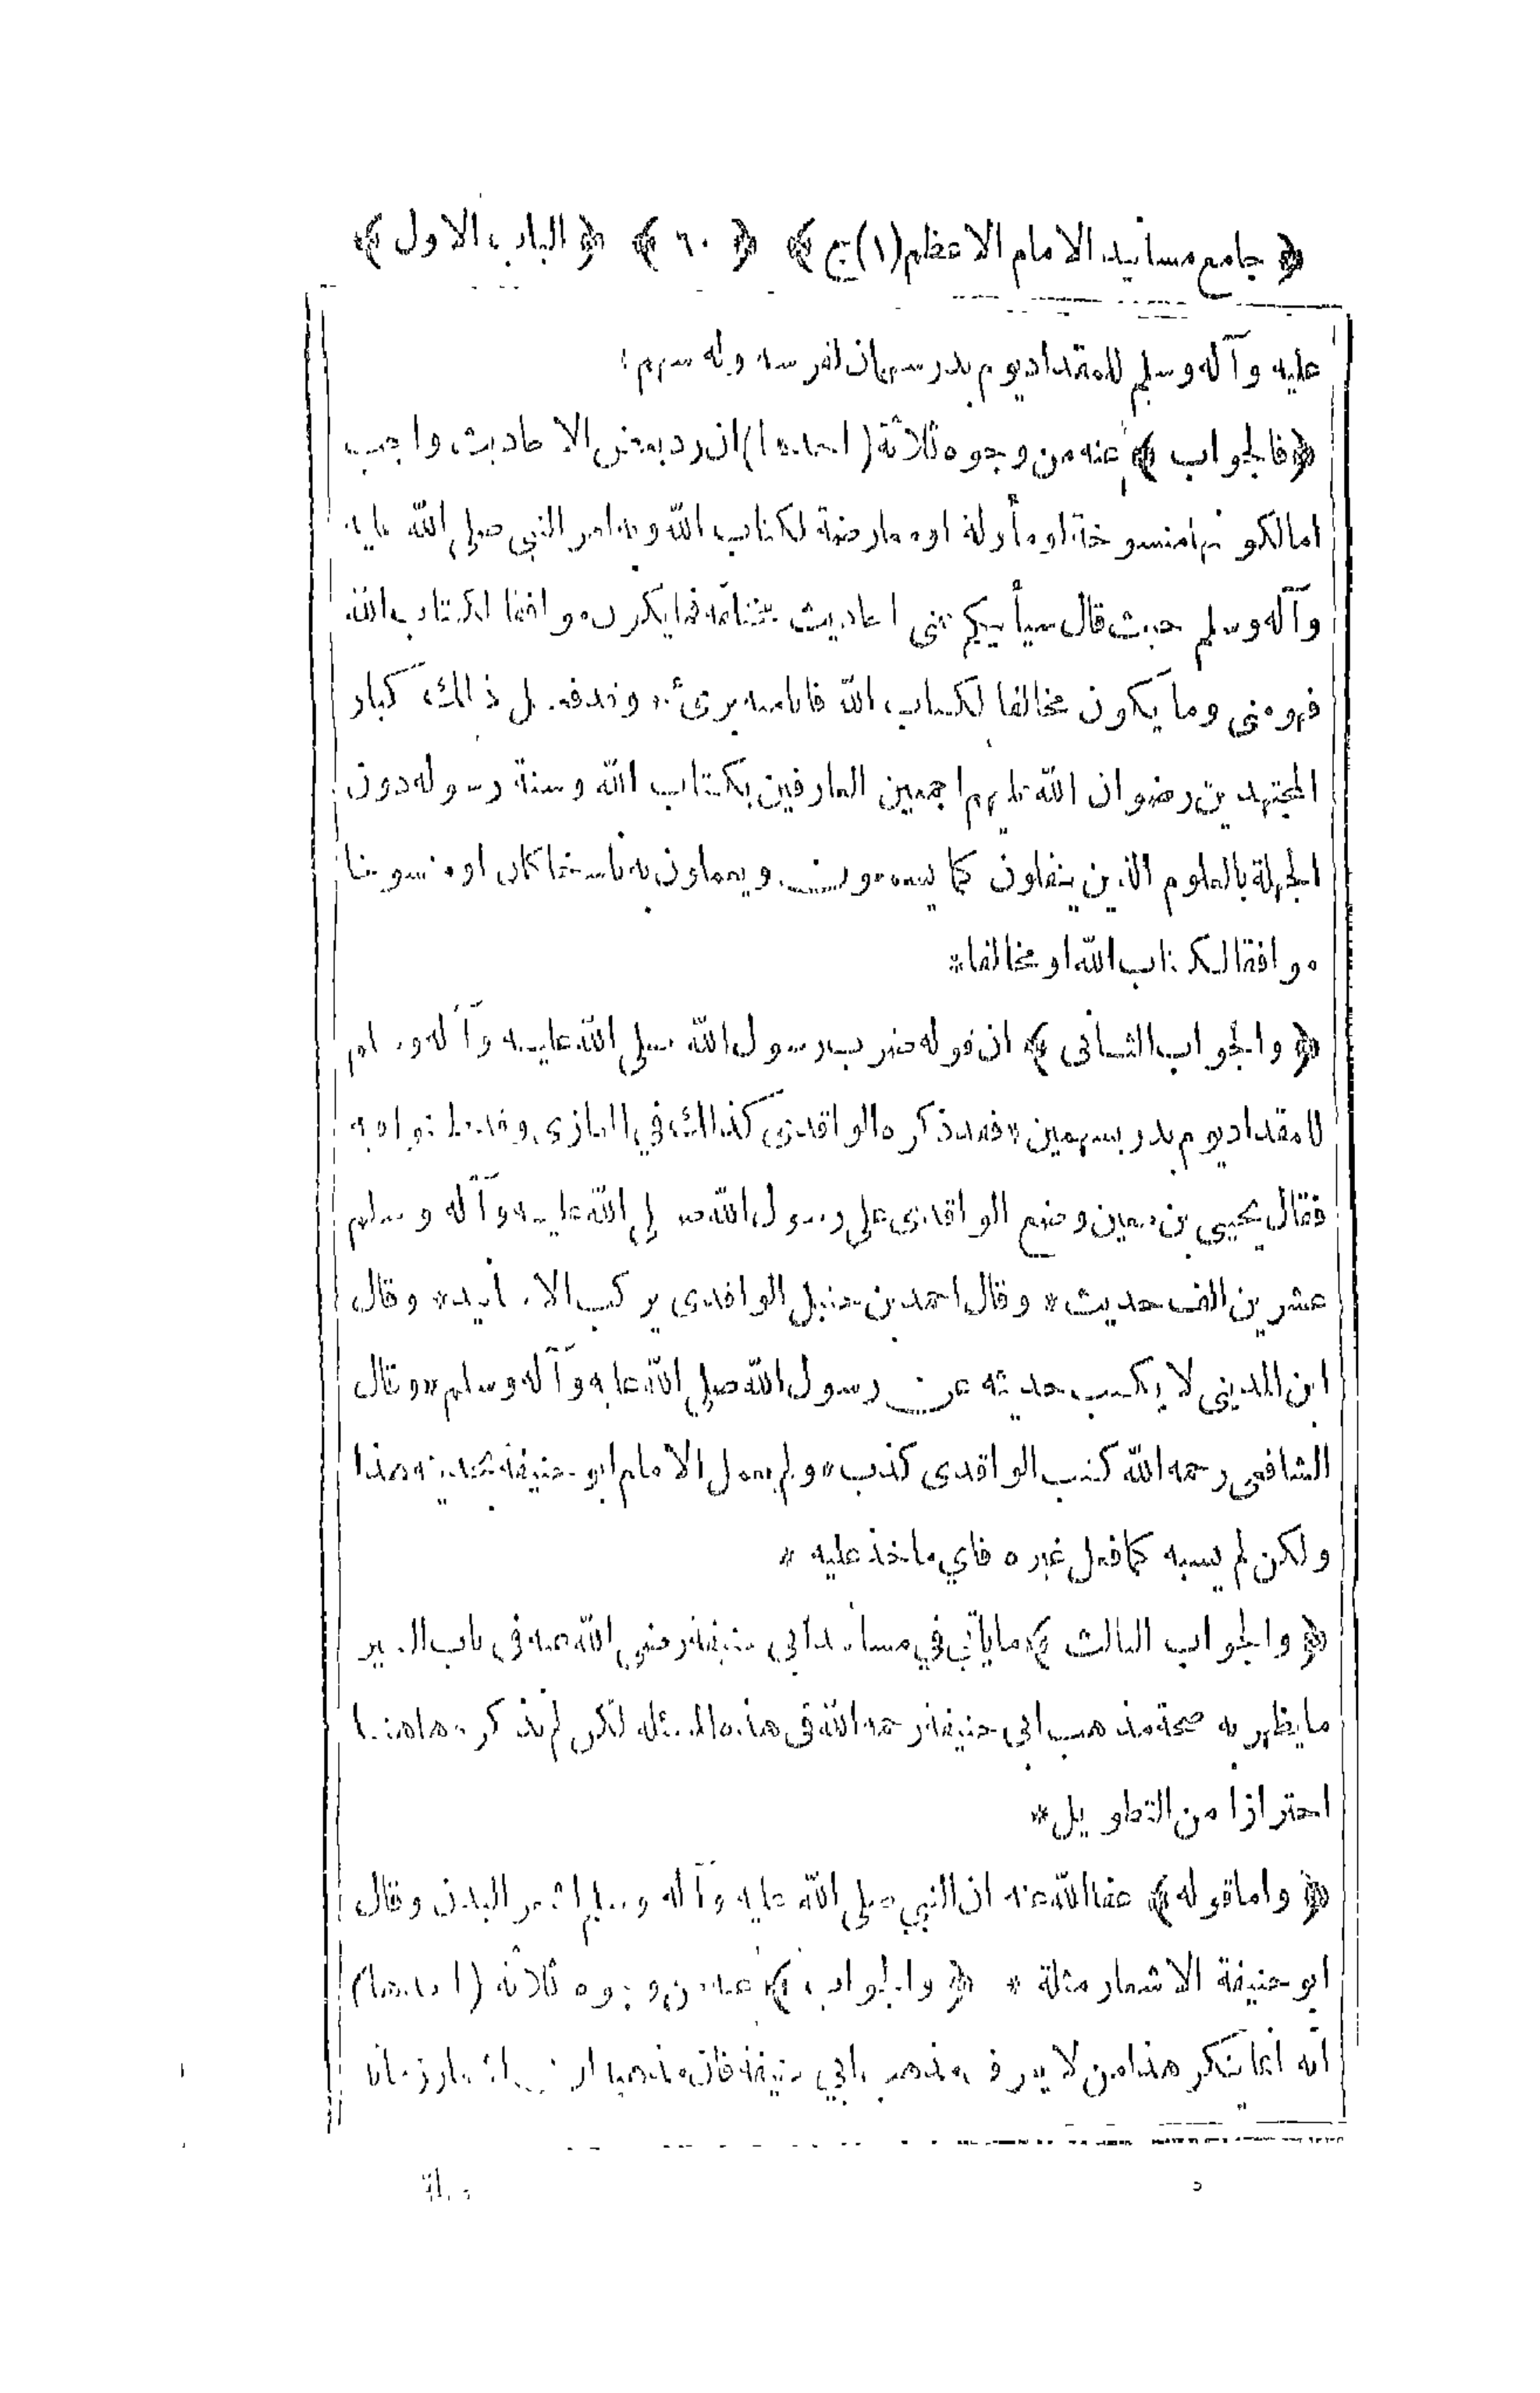 ﴿ جامع مسانيد الامام الاعظم (١) ج ﴾ ﴿ ٦٠ ﴾ ﴿ الباب الاول ﴾
عليه وآله وسلم للمقداد يوم بدر سهمان لفرسه وله سهم :
﴿ فالجواب ﴾ عنه من وجوه ثلاثة ( احدها ) ان رد بعض الاحاديث واجب
اما لكونها منسوخة او مأولة او معارضة لكتاب الله وبه امر النبي صلى الله عليه
وآله وسلم حيث قال سيأتيكم عنى احاديث مختلفة فما يكون موافقا لكتاب الله
فهو منى وما يكون مخالفا لكتاب الله فانا منه برئ * وقد فعل ذلك كبار
المجتهدين رضوان الله عليهم اجمعين العارفين بكتاب الله وسنة رسوله دون
الجهلة بالعلوم الذين ينقلون كما يسمعون ويعملون به ناسخا كان او منسوخا
موافقا لكتاب الله او مخالفا *
﴿ والجواب الثانى ﴾ ان قوله ضرب رسول الله صلى الله عليه وآله وسلم
للمقداد يوم بدر بسهمين * فقد ذكره الواقدى كذلك في المغازى وقد
فقال يحيى بن معين وضع الواقدى على رسول الله صلى الله عليه وآله وسلم
عشرين الف حديث * وقال احمد بن حنبل الواقدى يركب الاسانيد * وقال
ابن المدينى لا يكتب حديثه عن رسول الله صلى الله عليه وآله وسلم * وقال
الشافعى رحمه الله كتب الواقدى كذب * ولم يعمل الامام ابو حنيفة بحديثه هذا
ولكن لم يسبه كما فعل غيره فاي ماخذ عليه *
﴿ والجواب الثالث ﴾ ما يأتي في مسانيد ابى حنيفة رضى الله عنه فى باب السير
ما يظهر به صحة مذهب ابى حنيفة رحمه الله فى هذه المسئلة لكن لم نذكره هاهنا
احترازا من التطويل *
﴿ واما قوله ﴾ عفا الله عنه ان النبي صلى الله عليه وآله وسلم اشعر البدن وقال
ابو حنيفة الاشعار مثلة * ﴿ والجواب ﴾ عنه من وجوه ثلاثة ( احدها )
انه انما ينكر هذا من لا يعرف مذهب ابي حنيفة فان مذهبه ان